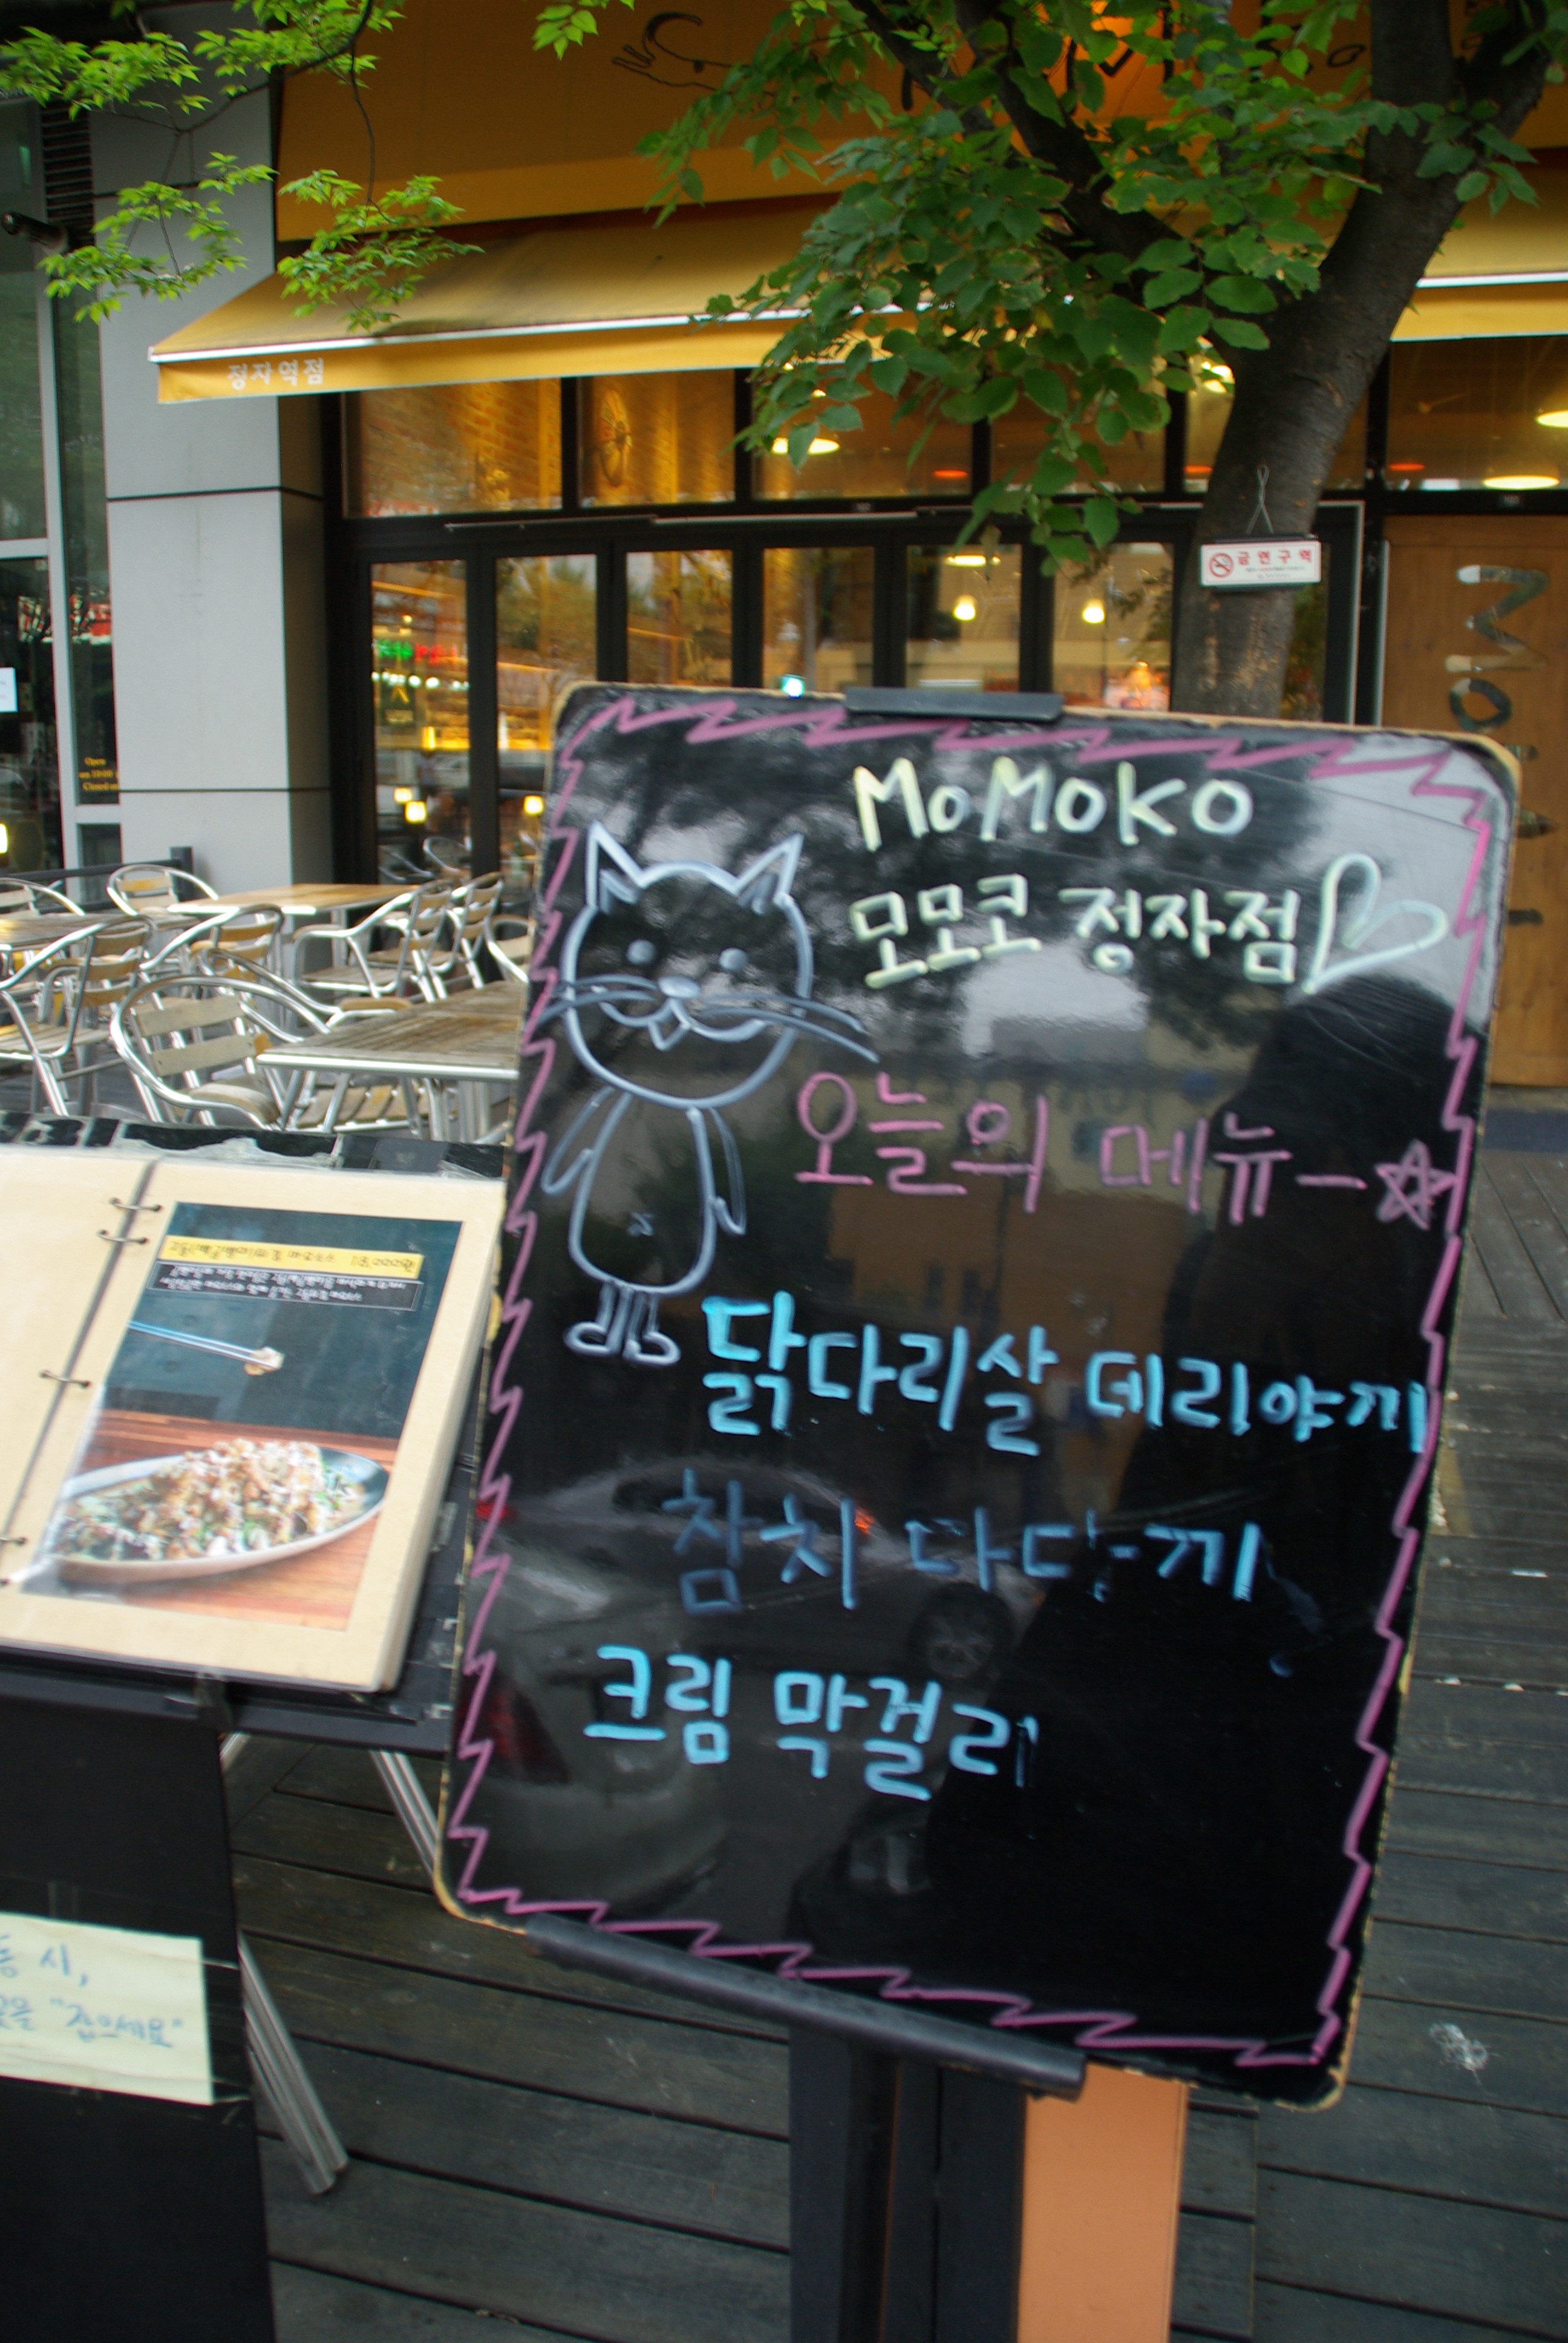 정자역점
금연구역
Open
MOMOKO
모모코 정자점
오늘의 메뉴-
닭다리살 데리야끼
참치 다다끼
크림 막걸리
시,
"잡으세요"